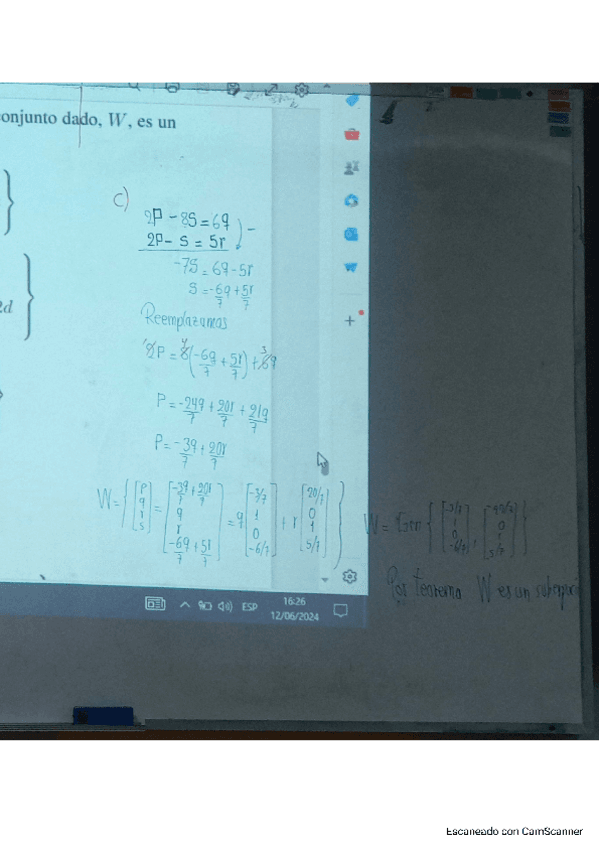 onjunto dado, W, es un
}
2d }
c)
2P - 8S = 6q
2P - S = 5r
-7S = 6q - 5r
S = -6q/7 + 5r/7
Reemplazamos
2P = 8(-6q/7 + 5r/7) + 6q
P = -24q/7 + 20r/7 + 21q/7
P = -3q/7 + 20r/7
W = { [P q r s] = [-3q/7 + 20r/7 q r -6q/7 + 5r/7] = q [-3/7 1 0 -6/7] + r [20/7 0 1 5/7] } W = Gen { [-3/7 1 0 -6/7], [ 0 1 5/7] }
Por teorema W es un
ESP
16:26
12/06/2024
Escaneado con CamScanner